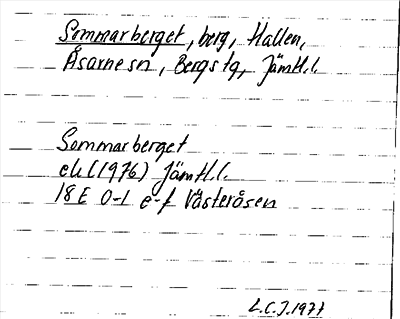 Sommarberget, berg, Hallen,
Åsarne sn, Bergs tg, Jämtl.l.
Sommarberget
ek (1976) Jämtl.l.
18E 0-1 e-f Västeråsen
L.C.J. 1977